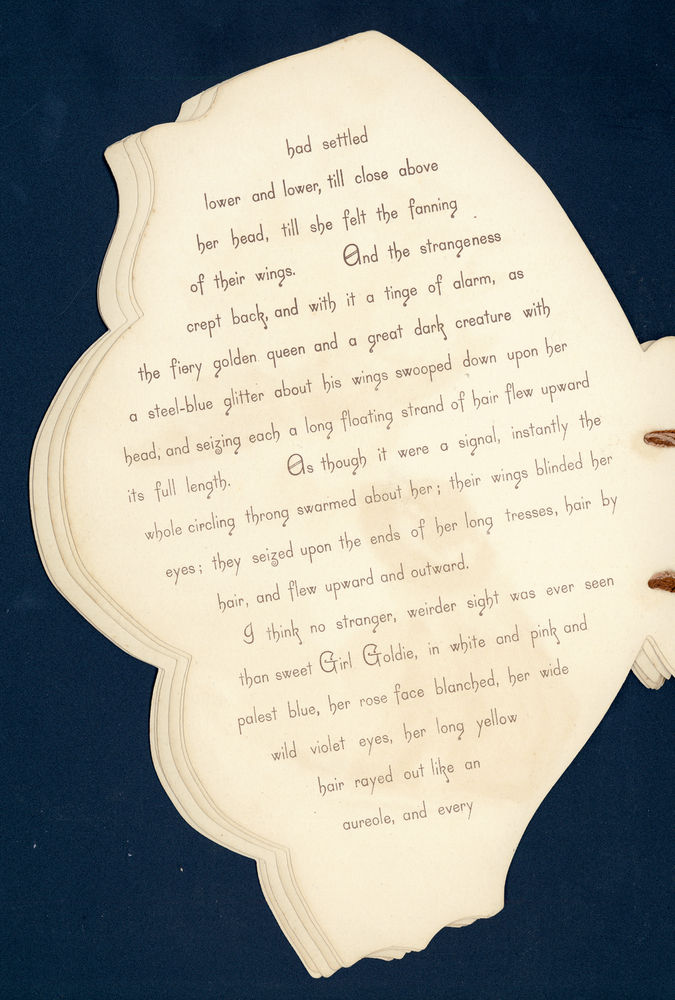 had settled
lower and lower, till close above
her head, till she felt the fanning
of their wings. And the strangeness
crept back, and with it a tinge of alarm, as
the fiery golden queen and a great dark creature with
a steel-blue glitter about his wings swooped down upon her
head, and seizing each a long floating strand of hair flew upward
its full length. As though it were a signal, instantly the
whole circling throng swarmed about her; their wings blinded her
eyes; they seized upon the ends of her long tresses, hair by
hair, and flew upward and outward.
I think no stranger, weirder sight was ever seen
than sweet Girl Goldie, in white and pink and
palest blue, her rose face blanched, her wide
wild violet eyes, her long yellow
hair rayed out like an
aureole, and every